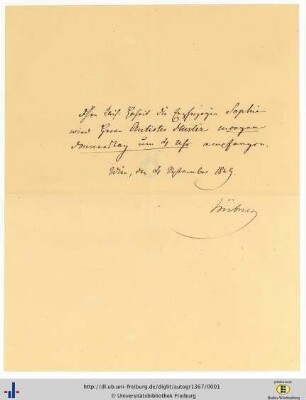 Ihre kais. Hoheit die Erzherzogin Sophie
wird Herrn Antistes Hurter morgen
Donnerstag um 4 Uhr empfangen.
Wien, den 4 September 18
http://dl.ub.uni-freiburg.de/diglit/autogr1367/0001
© Universitätsbibliothek Freiburg